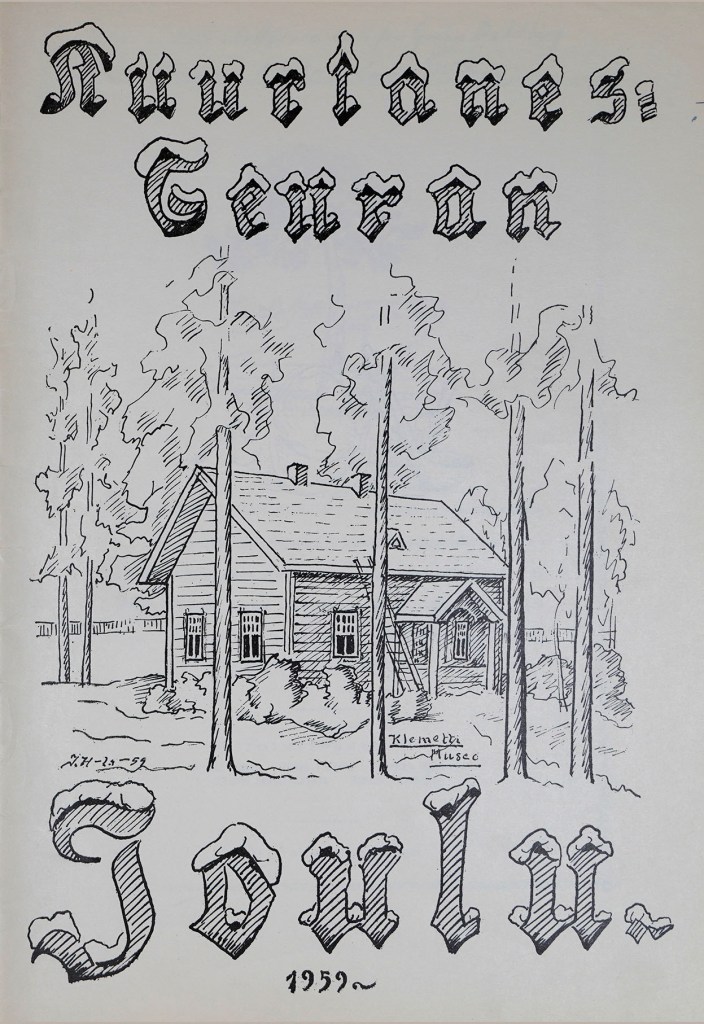 Kuortanes=
Seuran
Klemetti
Museo
J.H-la-59
Joulu.
1959~